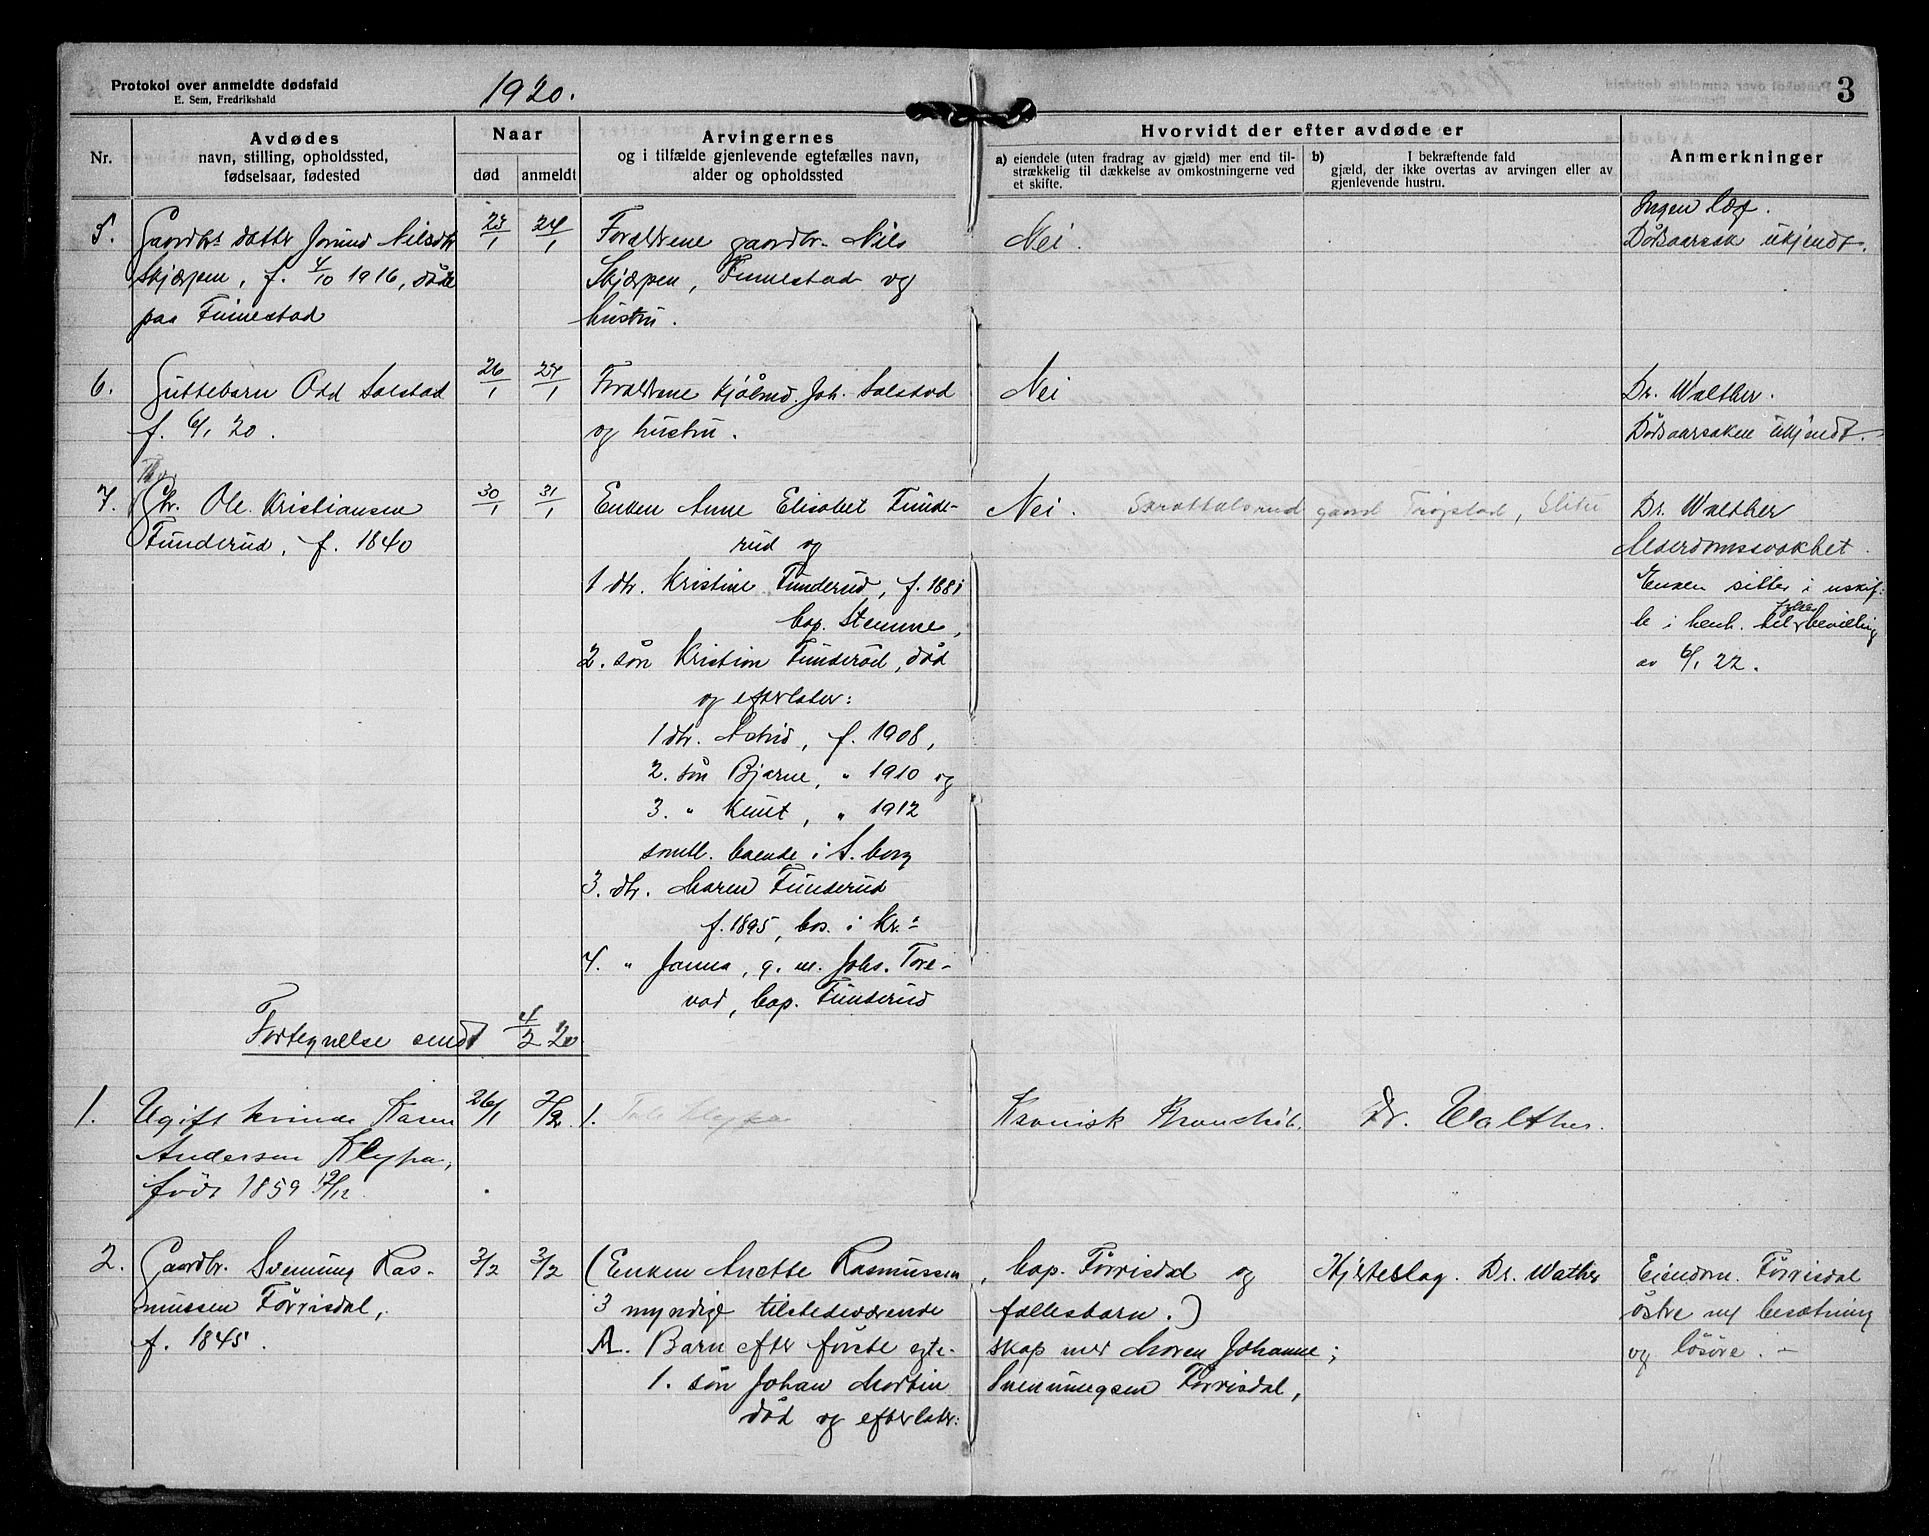 Protokol over anmeldte dødsfald
E. Sem, Fredrikshald
1920.
3
Nr.
Avdødes
navn, stilling, opholdssted,
fødselsaar, fødested
Naar
død
anmeldt
Arvingernes
og i tilfælde gjenlevende egtefælles navn,
alder og opholdssted
Hvorvidt der efter avdøde er
a) eiendele (uten fradrag av gjæld) mer end til-
strækkelig til dækkelse av omkostningerne ved
et skifte.
b) I bekræftende fald
gjæld, der ikke overtas av arvingen eller av
gjenlevende hustru.
Anmerkninger
5.
Gaardbrs datter Jorund Nilsdtr
Skjærpen, f. 4/10 1916, døde
paa Finnestad
23/1
24/1
Forældrene gaardbr. Nils
Skjærpen, Finnestad og
hustru.
Nei.
Ingen læge.
Dødsaarsak ukjendt.
6.
Guttebarn Odd Solstad
f. 6/1 20.
26/1
27/1
Forældrene kjøbmd. Joh. Solstad
og hustru.
Nei
Dr. Walther.
Dødsaarsaken ukjendt.
7.
Gbr. Ole Kristiansen
Funderud, f. 1840
30/1
31/1
Enken Anne Elisabet Funde-
rud og
1 dtr. Kristine Funderud, f. 1881
bop. Stemme,
2. søn Kristian Funderud, død
og efterlater:
1 dtr. Astrid, f. 1908,
2. søn Bjarne, " 1910 og
3. " Knut, " 1912
samtl. boende i S.borg
3. dtr. Maren Funderud
f. 1895, bos. i Kr.a
4. " Janna, g. m. Johs. Tore-
vad, bop. Funderud
Nei.
gaard Trøgstad, Slitu
Dr. Walther
Alderdomssvakhet.
Enken sitter i uskif-
te i henh. til fylkesbevilling
av 6/1 22.
Fortegnelse sendt 4/2 20
1.
Ugift kvinde Karen
Andersen Klypa,
født 1859 12/12
26/1
2/2
1.
Kronisk Bronchit.
Dr. Walther.
2.
Gaardbr. Svenung Ras-
mussen Førrisdal,
f. 1845.
3/2
3/2
(Enken Anette Rasmussen, bop. Førrisdal og
3 myndige tilstedeværende fællesbarn.)
A. Barn efter første egte- skap med Maren Johanne;
1. søn Johan Martin Svenningsen Førrisdal,
død og efterlater:
Hjerteslag. Dr. Wather
Eiendom. Førrisdal
østre m/ besætning
og løsøre. -